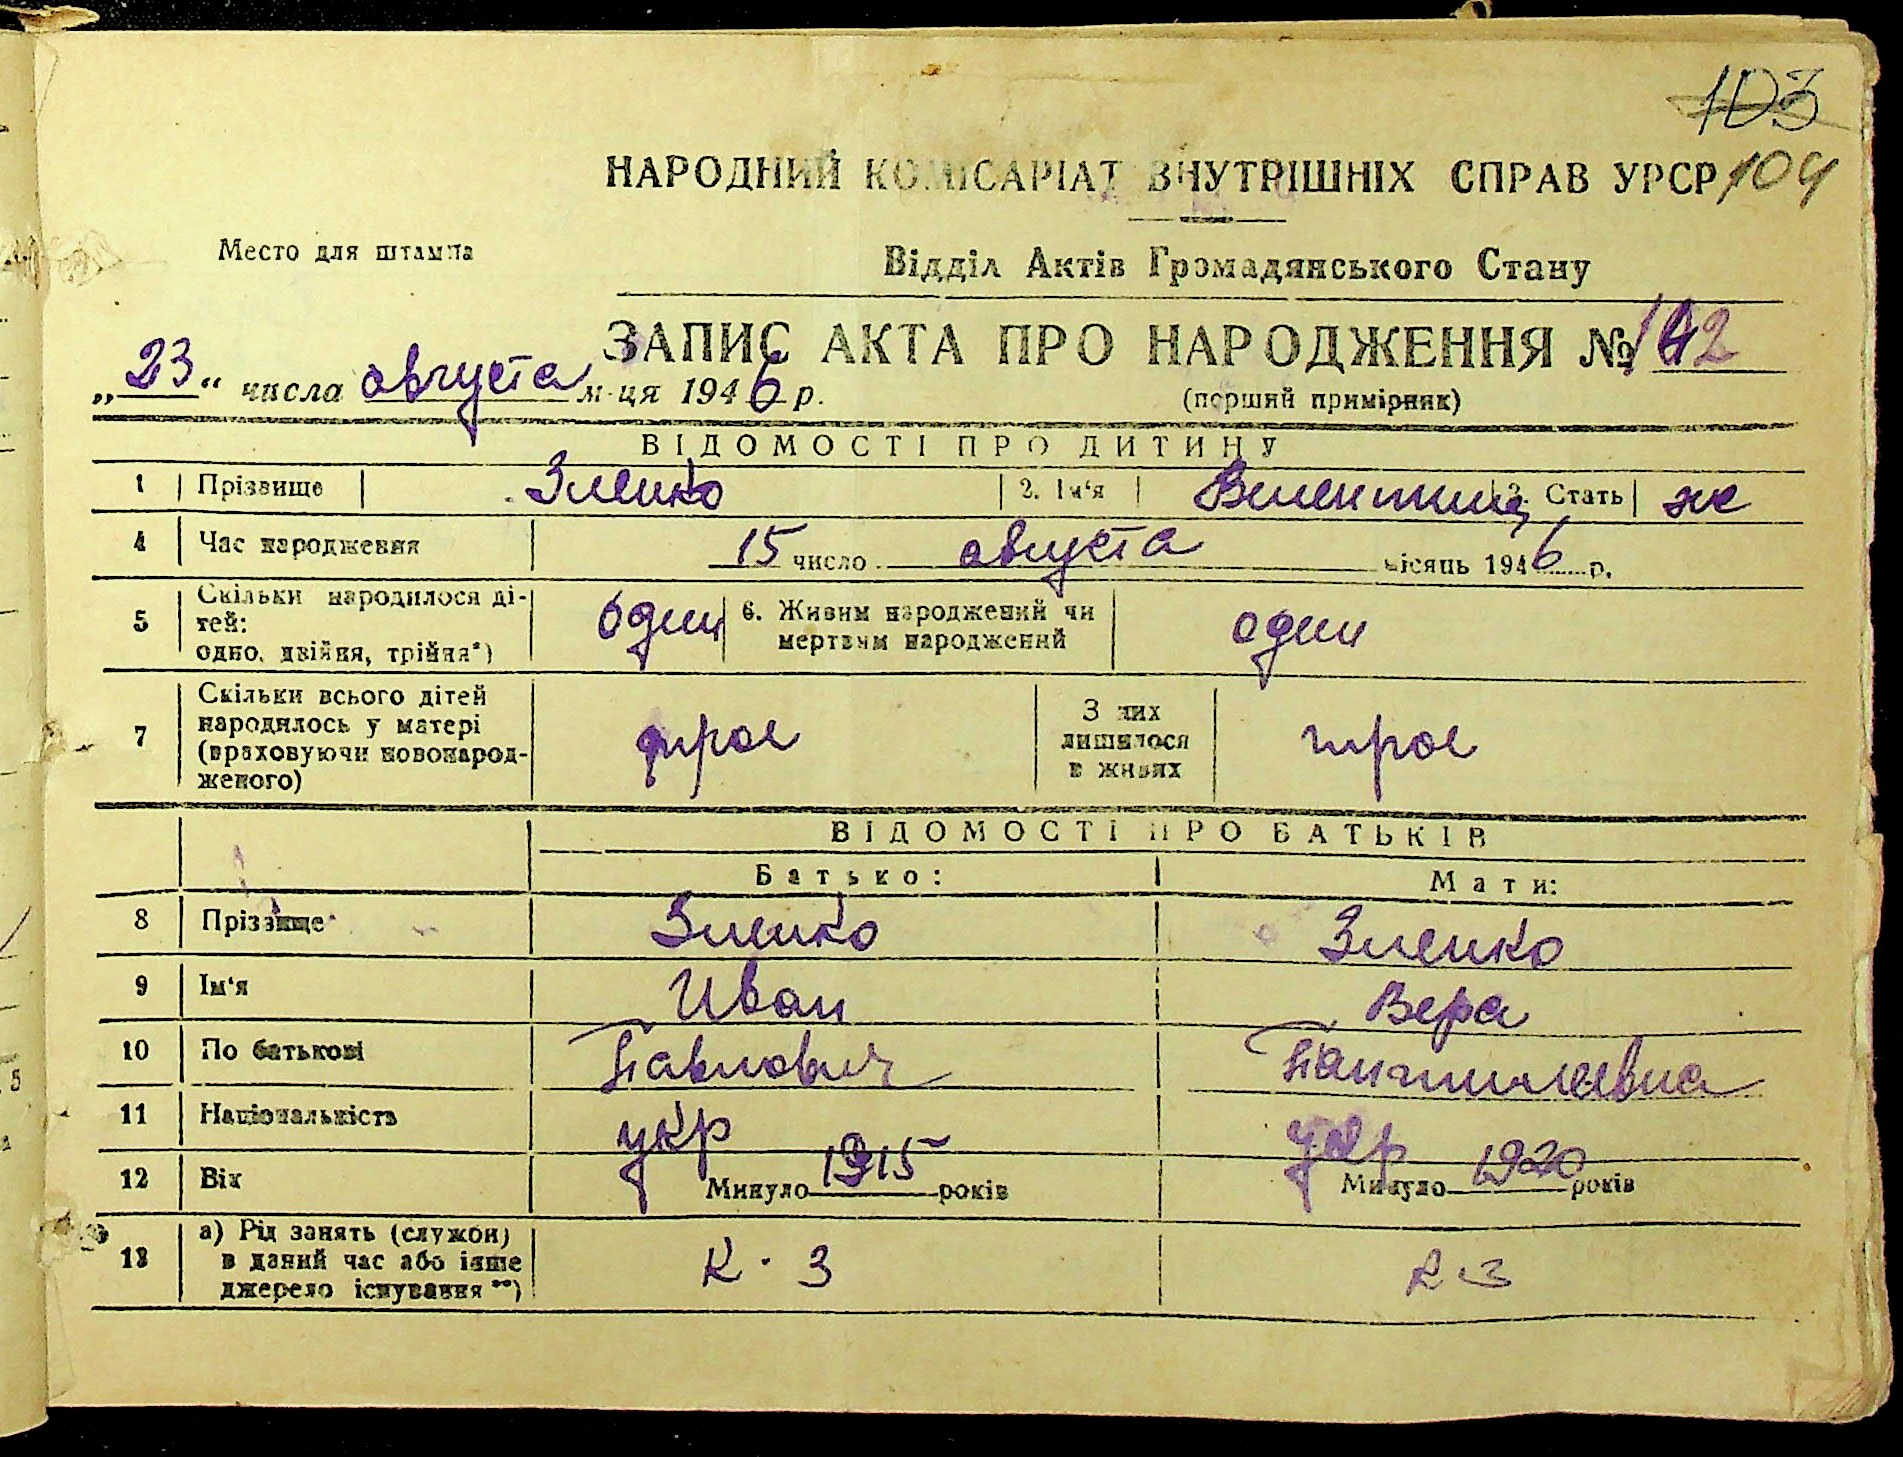 103
НАРОДНИЙ КОМІСАРІАТ ВНУТРІШНІХ СПРАВ УРСР 104
Место для штампа
Відділ Актів Громадянського Стану
ЗАПИС АКТА ПРО НАРОДЖЕННЯ №
„23“ числа августа м-ця 1946 р.
(перший примірник)
ВІДОМОСТІ ПРО ДИТИНУ
1 Прізвище Зленко 2. Ім‘я 3. Стать ж
4 Час народження 15 число августа місяць 1946 р.
5 Скільки народилося ді-
тей:
одно, двійня, трійня*) один 6. Живим народжений чи
мертвим народжений один
7 Скільки всього дітей
народилось у матері
(враховуючи новонарод-
женого) трое З них
лишилося
в живих трое
ВІДОМОСТІ ПРО БАТЬКІВ
Батько: Мати:
8 Прізвище Зленко Зленко
9 Ім‘я Иван Вера
10 По батькові Павлович Пантилеевна
11 Національність укр укр
12 Вік Минуло 1915 років Минуло 1920 років
13 а) Рід занять (служби)
в даний час або інше
джерело існування **) К-З К-З